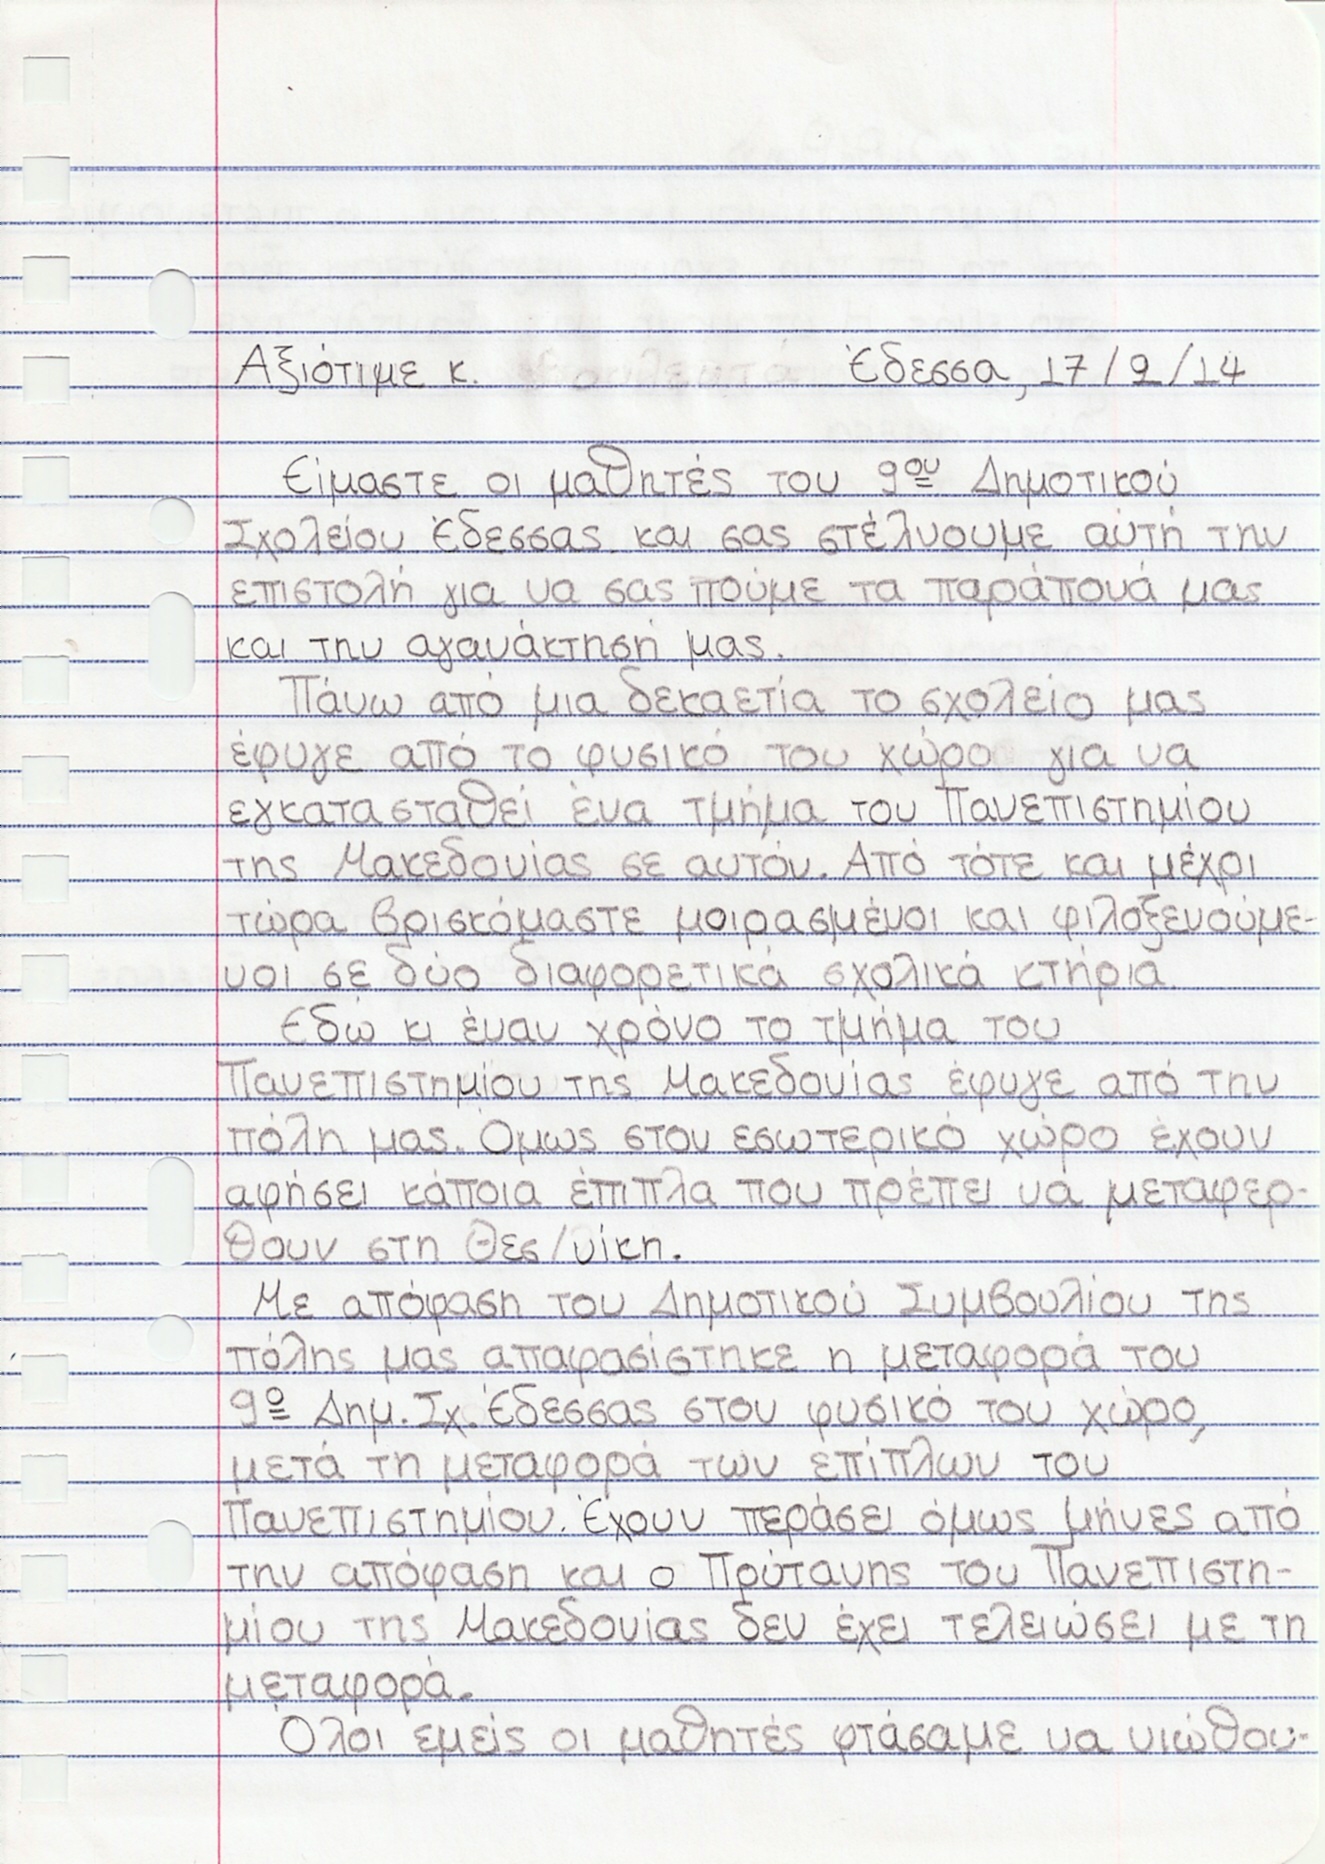 Αξιότιμε κ. Έδεσσα, 17/2/14
Είμαστε οι μαθητές του 9ου Δημοτικού
Σχολείου Έδεσσας και σας στέλνουμε αυτή την
επιστολή για να σας πούμε τα παράπονά μας
και την αγανάκτησή μας.
Πάνω από μια δεκαετία το σχολείο μας
έφυγε από το φυσικό του χώρο για να
εγκατασταθεί ένα τμήμα του Πανεπιστημίου
της Μακεδονίας σε αυτόν. Από τότε και μέχρι
τώρα βρισκόμαστε μοιρασμένοι και φιλοξενούμε-
νοι σε δύο διαφορετικά σχολικά κτήρια.
Εδώ κι έναν χρόνο το τμήμα του
Πανεπιστημίου της Μακεδονίας έφυγε από την
πόλη μας. Όμως στον εσωτερικό χώρο έχουν
αφήσει κάποια έπιπλα που πρέπει να μεταφερ-
θουν στη Θεσ/νίκη.
Με απόφαση του Δημοτικού Συμβουλίου της
πόλης μας απαφασίστηκε η μεταφορά του
9ο Δημ. Σχ. Έδεσσας στον φυσικό του χώρο,
μετά τη μεταφορά των επίπλων του
Πανεπιστημίου. Έχουν περάσει όμως μήνες από
την απόφαση και ο Πρύτανης του Πανεπιστη-
μίου της Μακεδονίας δεν έχει τελειώσει με τη
μεταφορά.
Όλοι εμείς οι μαθητές φτάσαμε να νιώθου-